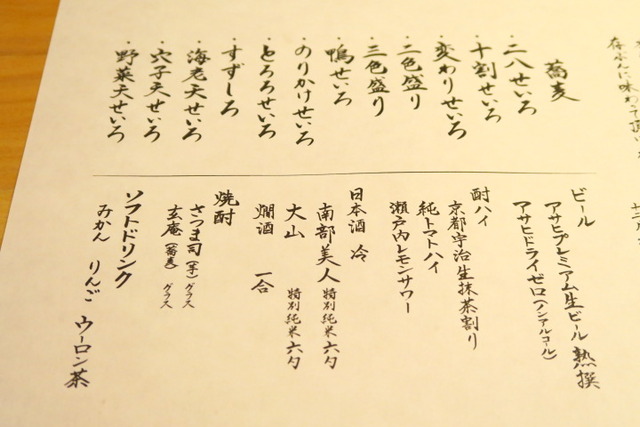 蕎麦
・二八せいろ
・十割せいろ
・変わりせいろ
・二色盛り
・三色盛り
・鴨せいろ
・のりかけせいろ
・とろろせいろ
・すずしろ
・海老天せいろ
・穴子天せいろ
・野菜天せいろ
ビール
アサヒプレミアム生ビール 熟撰
アサヒドライゼロ(ノンアルコール)
酎ハイ
京都宇治生抹茶割り
純トマトハイ
瀬戸内レモンサワー
日本酒 冷
南部美人 特別純米 六勺
大山 特別純米 六勺
燗酒 一合
焼酎
さつま司(芋) グラス
玄庵(蕎麦) グラス
ソフトドリンク
みかん りんご ウーロン茶